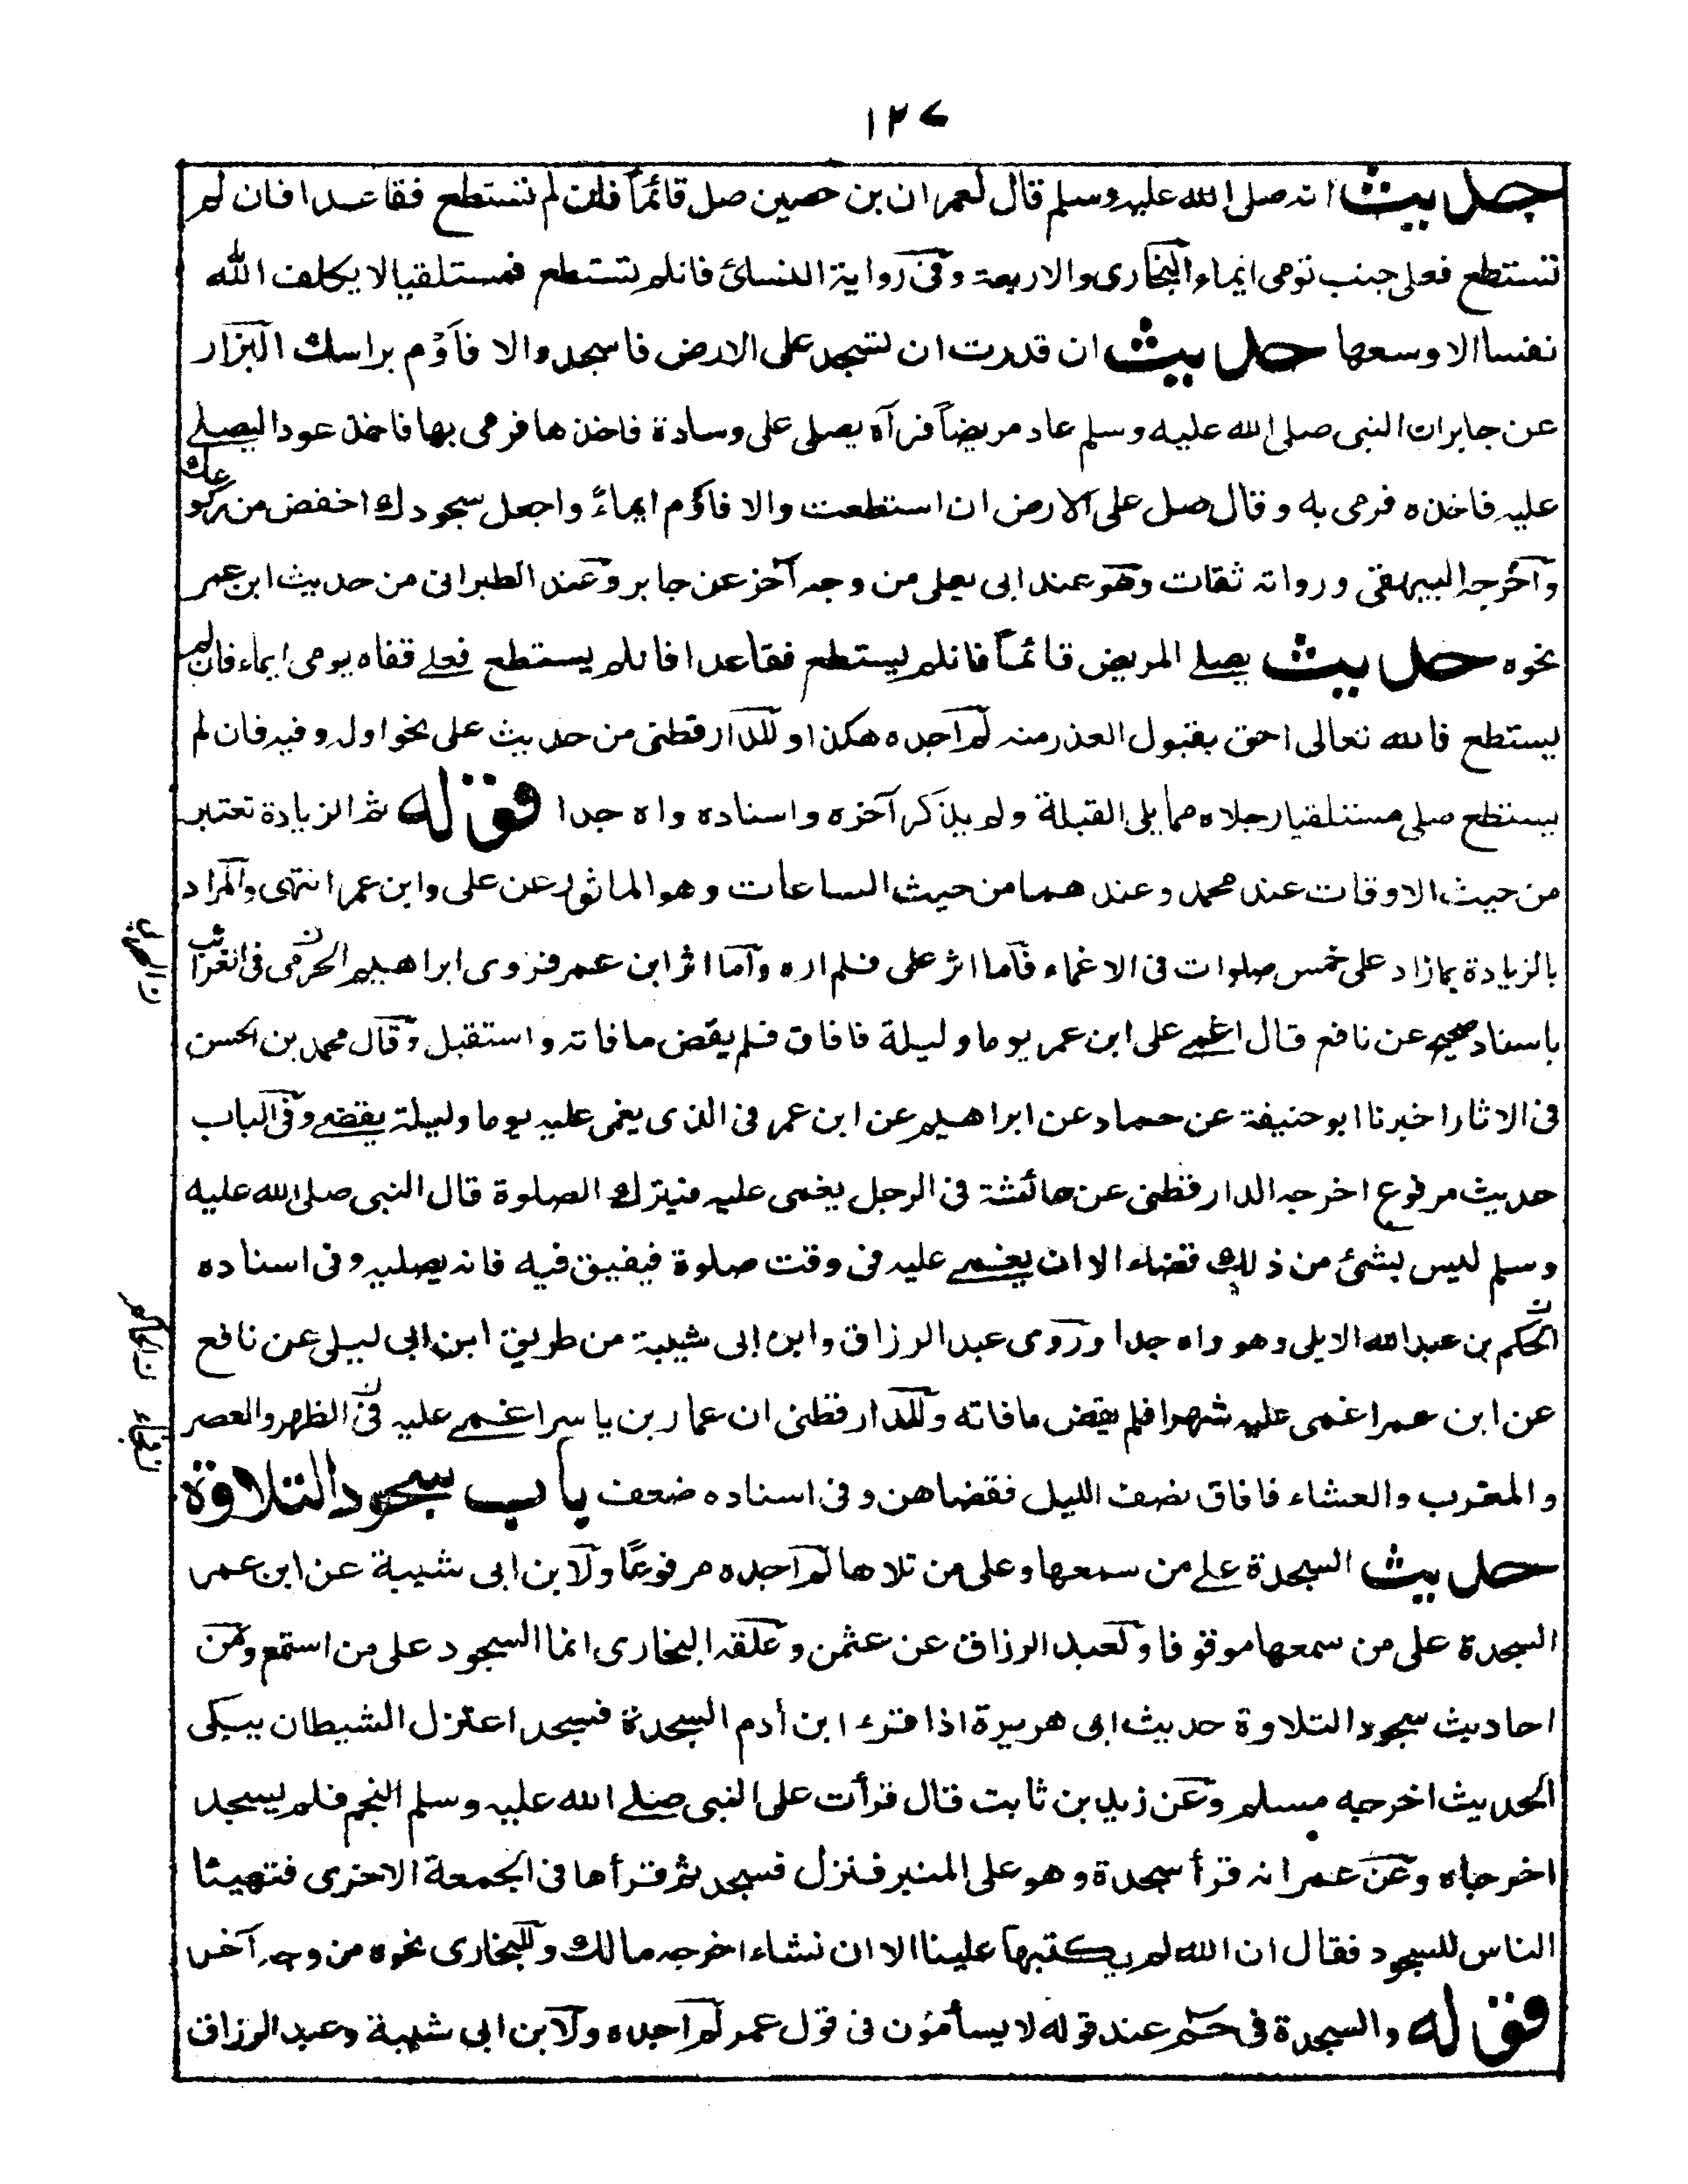 ١٢٧
حديث انه صلى الله عليه وسلم قال لعمران بن حصين صل قائمًا فان لم تستطع فقاعدا فان لم
تستطع فعلى جنب تومى ايماء البخارى والاربعة وفى رواية النسائ فانلم تستطع فمستلقيا لا يكلف الله
نفسا الا وسعها حديث ان قدرت ان تسجد على الارض فاسجد والا فاَوْم براسك البزار
عن جابر ان النبى صلى الله عليه وسلم عاد مريضاً فرآه يصلى على وسادة فاخذها فرمى بها فاخذ عودا ليصلے
عليه فاخذه فرمى به وقال صل على الارض ان استطعت والا فاؤم ايماءً واجعل سجودك اخفض من ركوعك
وآخرجه البيهقى ورواته ثقات وهو عند ابى يعلى من وجه آخر عن جابر وعند الطبرانى من حديث ابن عمر
نحوه حديث يصلے المريض قائماً فانلم يستطع فقاعدا فانلم يستطع فعلے قفاه يومى ايماء فان لم
يستطع فالله تعالى احق بقبول العذر منه لم اجده هكذا وللدارقطنى من حديث على نحو اوله وفيه فان لم
يستطع صلى مستلقيا رجلاه مما يلى القبلة ولم يذكر آخره واسناده واه جدا قوله ثم الزيادة تعتبر
من حيث الاوقات عند محمد وعندهما من حيث الساعات وهو الماثور عن على وابن عمر انتهى والمراد
بالزيادة بمازاد على خمس صلوات فى الاغماء فآما اثر على فلم اره وآما اثر ابن عمر فروى ابراهيم الحرمى فى الغرائب
باسناد صحيح عن نافع قال اغمے على ابن عمر يوما وليلة فافاق فلم يقض ما فاته واستقبل وقال محمد بن الحسن
فى الاثار اخبرنا ابو حنيفة عن حماد عن ابراهيم عن ابن عمر فى الذى يغمى عليه يوما وليلة يقضے وفى الباب
حديث مرفوع اخرجه الدارقطنى عن عائشة فى الرجل يغمى عليه فيترك الصلوة قال النبى صلى الله عليه
وسلم ليس بشئ من ذلك قضاء الا ان يغمے عليه فى وقت صلوة فيفيق فيه فانه يصليه وفى اسناده
الحكم بن عبدالله الايلى وهو واه جدا وروى عبد الرزاق وابن ابى شيبة من طريق ابن ابى ليلى عن نافع
عن ابن عمر اغمى عليه شهرا فلم يقض ما فاته وللدارقطنى ان عمار بن ياسر اغمے عليه فى الظهر والعصر
والمغرب والعشاء فافاق نصف الليل فقضاهن وفى اسناده ضعف باب سجود التلاوة
حديث السجدة علے من سمعها وعلى من تلاها لم اجده مرفوعًا ولابن ابى شيبة عن ابن عمر
السجدة على من سمعها موقوفا ولعبد الرزاق عن عثمن وعلقه البخارى انما السجود على من استمع ومن
احاديث سجود التلاوة حديث ابى هريرة اذا قرء ابن أدم السجدة فسجد اعتزل الشيطان يبكى
الحديث اخرجه مسلم وعن زيد بن ثابت قال قرأت على النبى صلے الله عليه وسلم النجم فلم يسجد
اخرجاه وعن عمر انه قرأ سجدة وهو على المنبر فنزل فسجد ثم قرأها فى الجمعة الاخرى فتهيئا
الناس للسجود فقال ان الله لم يكتبها علينا الا ان نشاء اخرجه مالك وللبخارى نحوه من وجه آخر
قوله والسجدة فى حم عند قوله لا يسأمون فى قول عمر لم اجده ولابن ابى شيبة وعبد الرزاق